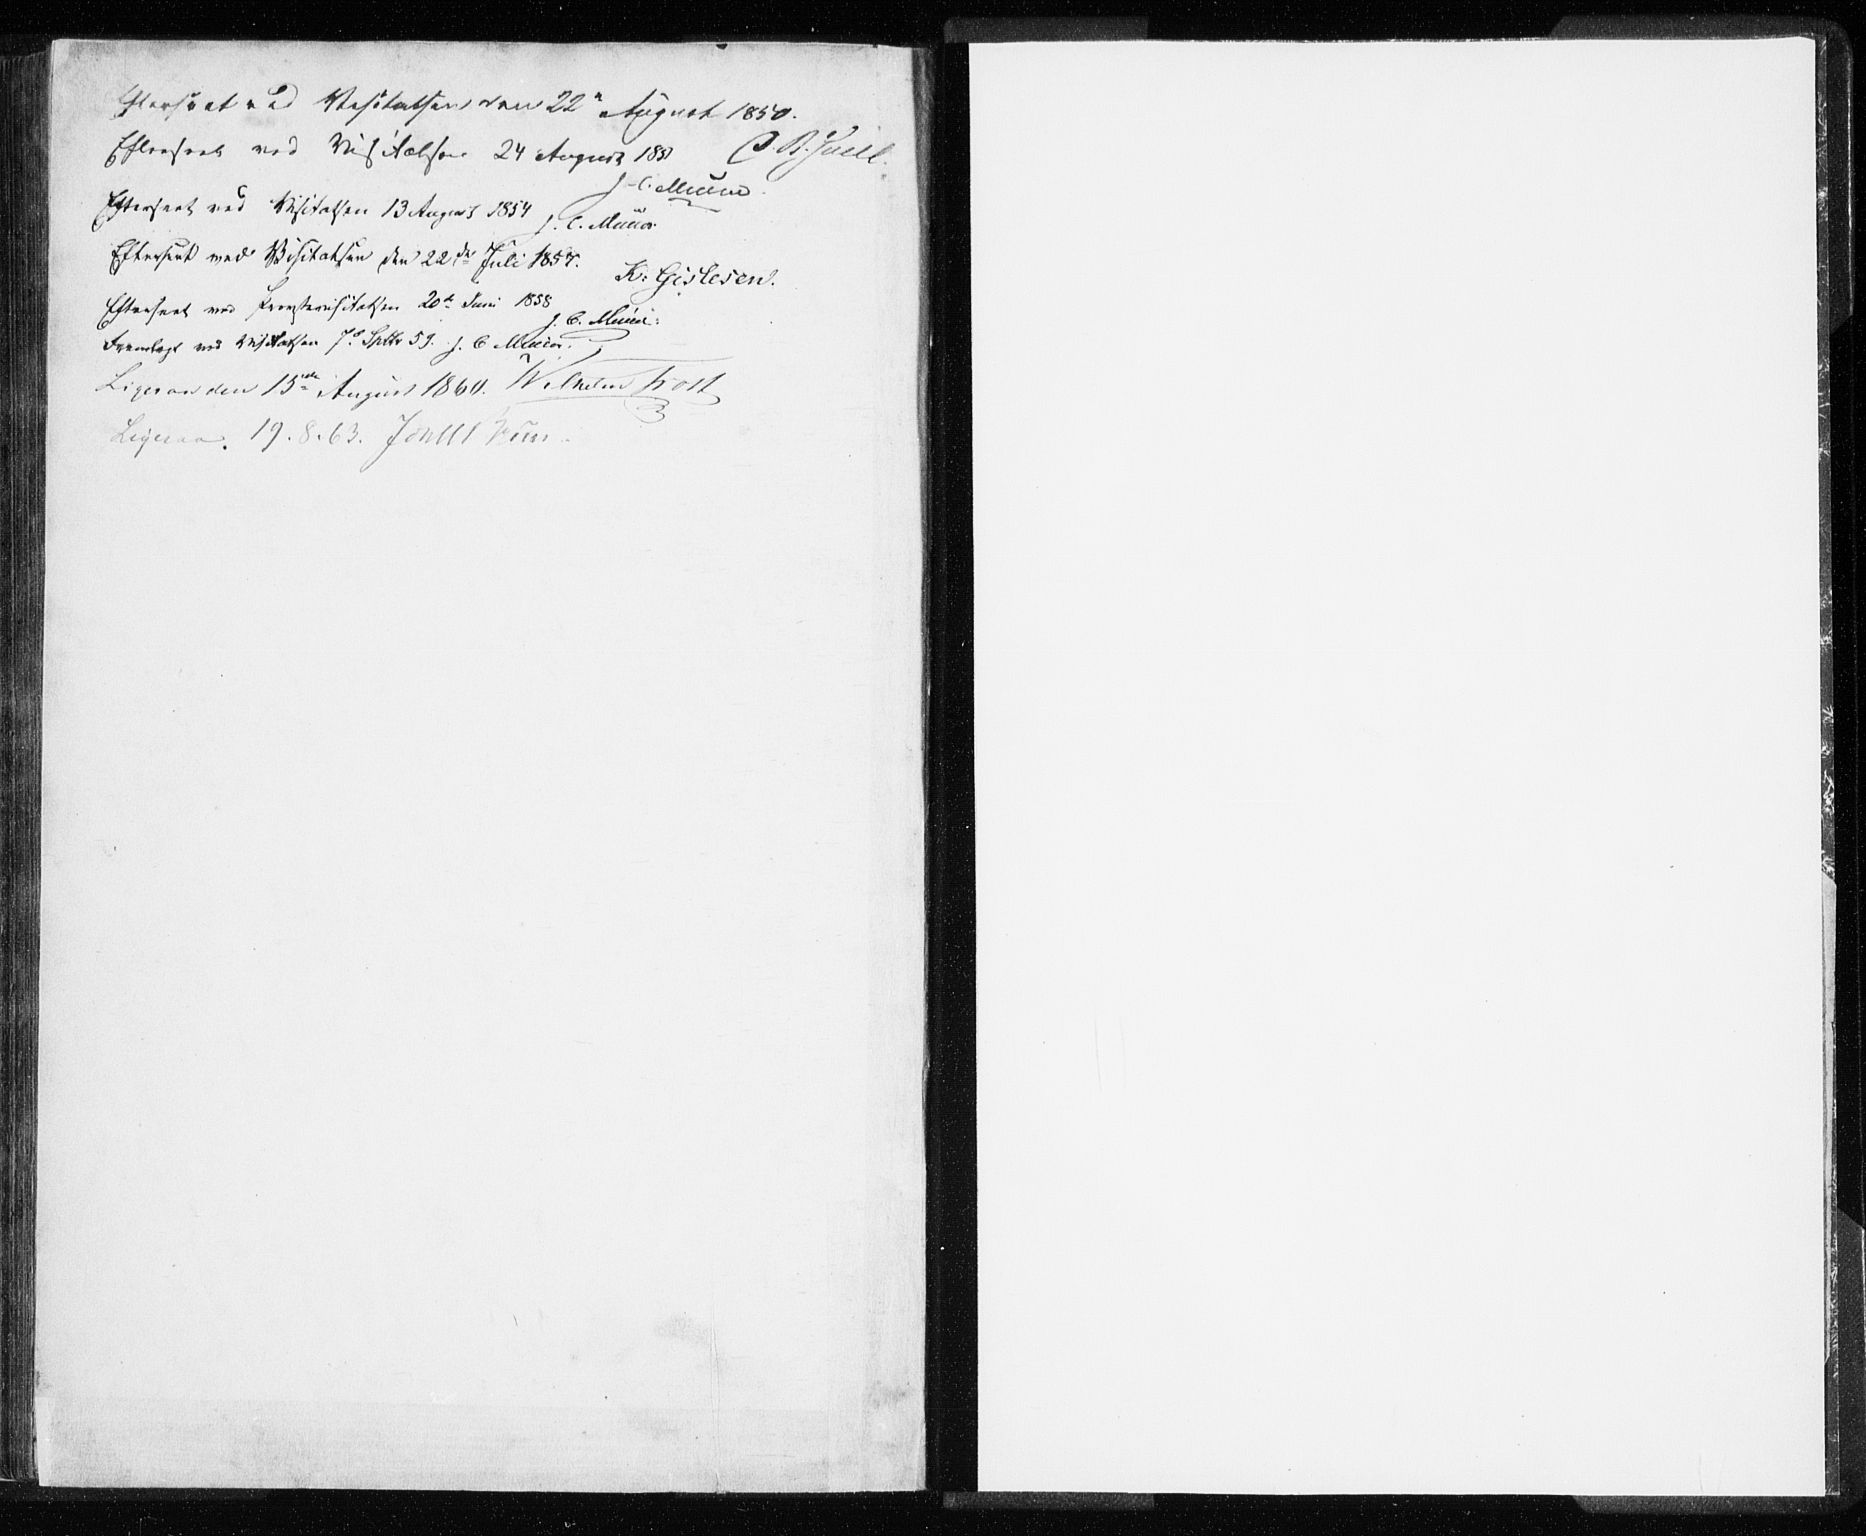 Efterseet ved Visitatsen den 22n August 1850.
Efterseet ved Visitatsen 24 August 1851 C. B. Juell.
J. C. Muus
Efterseet ved Visitatsen 13 August 1854 J. C. Muus
Efterseet ved Visitatsen den 22de Juli 1857. K: Gislesen.
Efterseet ved Provstevisitatsen 20de Juni 1858 J. C. Muus
Fremlagt ved Visitatsen 7de Septbr 59. J. C Muus.
Ligesaa den 15de August 1860. Wilhelm Frost
Ligesaa. 19.8.63.